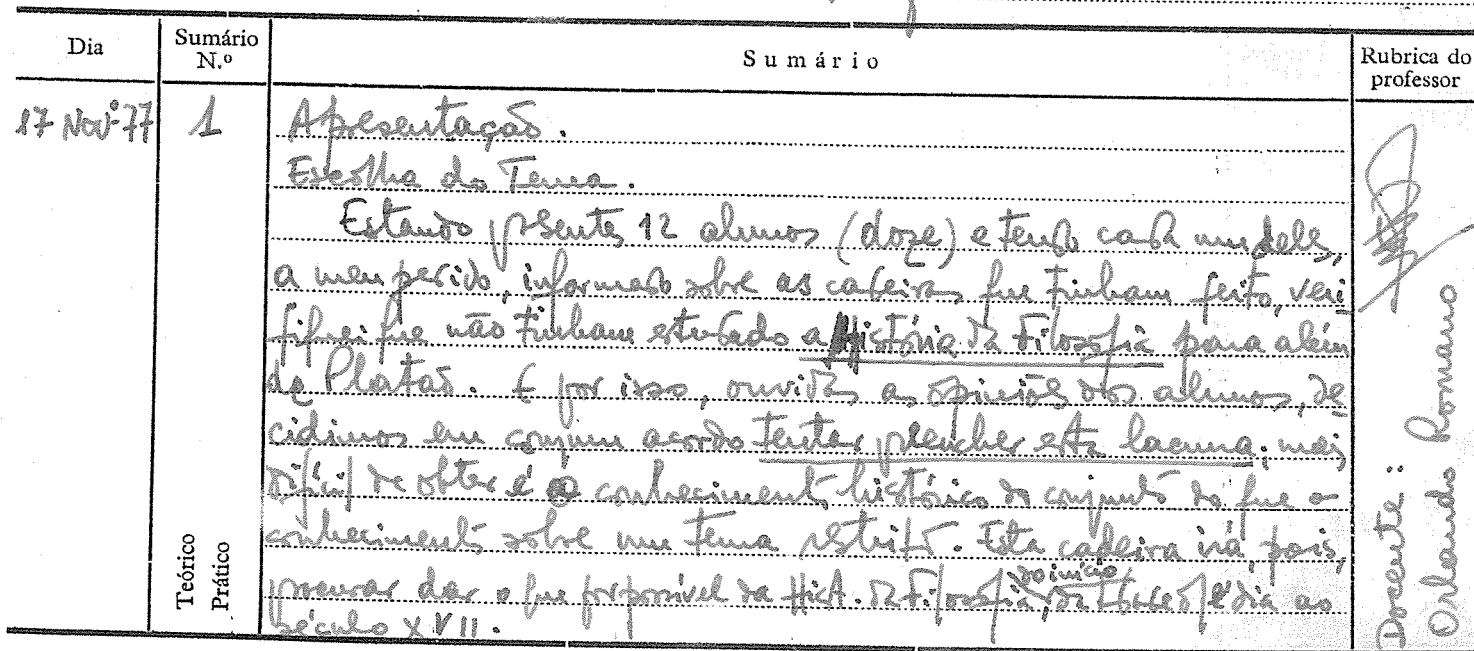 Dia
Sumário N.º
Sumário
Rubrica do professor
17 Nov.º 77
1
Apresentação.
Escolha do Tema.
Estando presentes 12 alunos (doze) e tendo cada um deles,
a meu pedido, informado sobre as cadeiras que tinham feito, veri
fiquei que não tinham estudado a História da Filosofia para além
de Platão. E por isso, ouvidas as opiniões dos alunos, de
cidimos em comum acordo tentar preencher esta lacuna; mais
difícil de obter é o conhecimento histórico do conjunto do que o
conhecimento sobre um tema restrito. Esta cadeira irá, pois,
procurar dar o que for possível da Hist. da Filosofia, do início da ao
século XVII.
Teórico
Prático
Docente: Orlando Romano